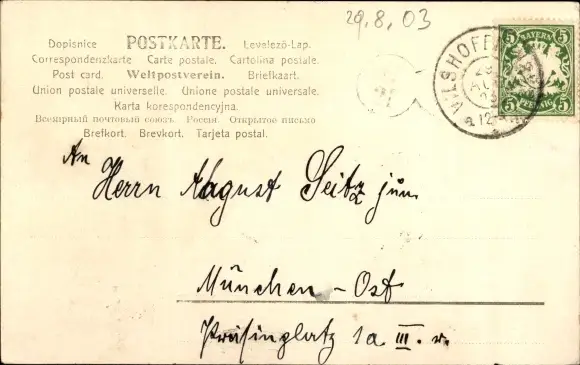 29.8.03
Dopisnice POSTKARTE. Levelezö-Lap.
Correspondenzkarte Carte postale. Cartolina postale.
Post card. Weltpostverein. Briefkaart.
Union postale universelle. Unione postale universale.
Karta korespondencyjna.
Всемірный почтовый союзъ. Россія. Открытое письмо
Brefkort. Brevkort. Tarjeta postal.
BAYERN
5 5
5 PFENNIG 5
VILSHOFEN
29
AUG
An
Herrn August Seitz jun.
München - Ost
Präsinplatz 1a III. r.